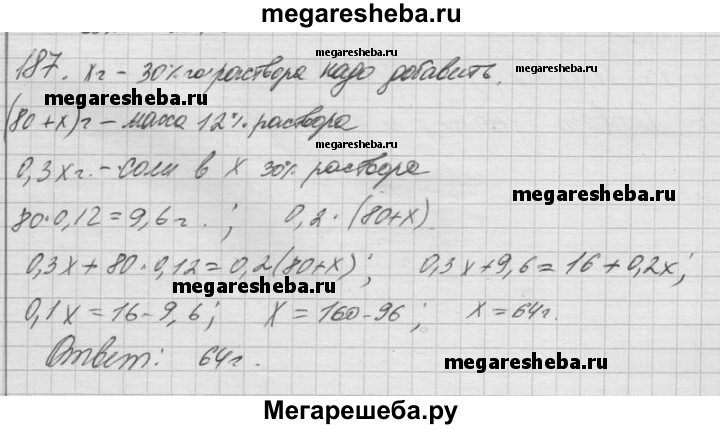 megaresheba.ru
187. хг - 30%го раствора надо добавить.
megaresheba.ru
megaresheba.ru
megaresheba.ru
(80+х)г - масса 12% раствора
0,3хг. - соли в х 30% раствора
megaresheba.ru
80·0,12=9,6г.; 0,2·(80+х)
megaresheba.ru
0,3х+80·0,12=0,2(80+х); 0,3х+9,6=16+0,2х;
megaresheba.ru
0,1х=16-9,6; х=160-96; х=64г.
Ответ: 64г.
megaresheba.ru
Мегарешеба.ру